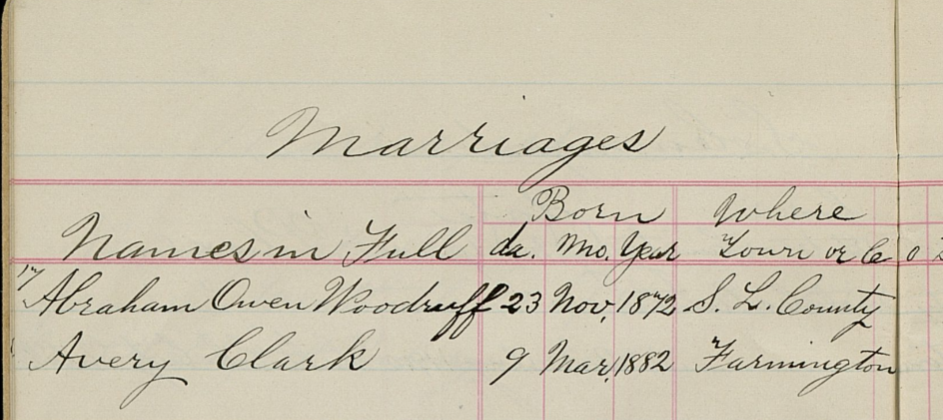 Marriages
Born Where
Names in Full da. Mo. Year Town or Co
17 Abraham Owen Woodruff 23 Nov. 1872 S. L. County
Avery Clark 9 Mar. 1882 Farmington